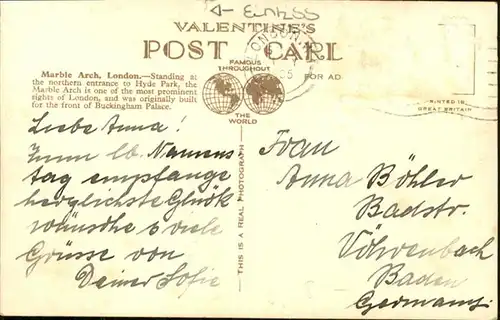 VALENTINE'S
POST CARD
FAMOUS
THROUGHOUT
THE
WORLD
LONDON
FOR AD
Marble Arch, London.—Standing at
the northern entrance to Hyde Park, the
Marble Arch is one of the most prominent
sights of London, and was originally built
for the front of Buckingham Palace.
PRINTED IN
GREAT BRITAIN
THIS IS A REAL PHOTOGRAPH
Liebe Anna!
Zum lb. Namens
tag empfange
herzlichste Glück
wünsche & viele
Grüsse von
Deiner Sofie
Frau
Anna Böhler
Badstr.
Vöhrenbach
Baden
Germany.